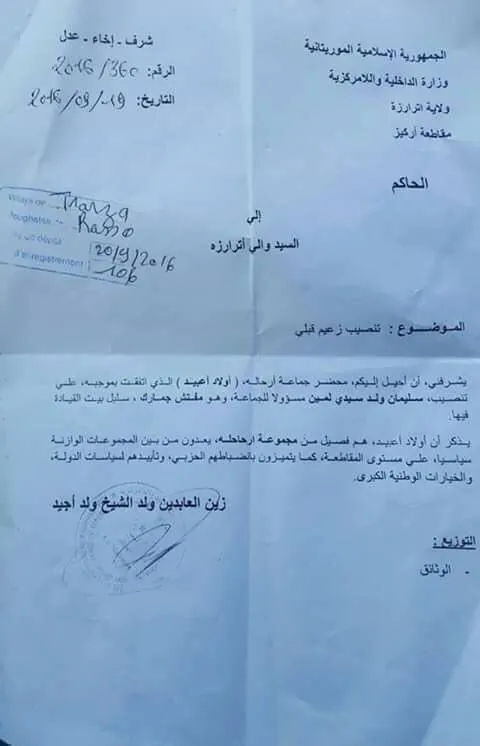 الجمهورية الإسلامية الموريتانية
وزارة الداخلية واللامركزية
ولاية اترارزة
مقاطعة أركيز
شرف - إخاء - عدل
الرقم: 2016/360
التاريخ: 2016/09/19
الحاكم
إلي
السيد والي أترارزه
Wilaya de Trarza
Moughataa Rosso
20/9/2016
d'enregistrement 106
الموضوع : تنصيب زعيم قبلي
يشرفني، أن أحيل إليكم، محضر جماعة أرحاله، ( أولاد أعبيد ) الذي اتفقت بموجبه، علي
تنصيب، سليمان ولد سيدي لمين مسؤولا للجماعة، وهو مفتش جمارك، سليل بيت القيادة
فيها.
يذكر أن أولاد أعبيد، هم فصيل من مجموعة ارحاحله، يعدون من بين المجموعات الوازنة
سياسيا، علي مستوى المقاطعة، كما يتميزون بانضباطهم الحزبي، وتأييدهم لسياسات الدولة،
والخيارات الوطنية الكبرى.
زين العابدين ولد الشيخ ولد أجيد
التوزيع :
- الوثائق